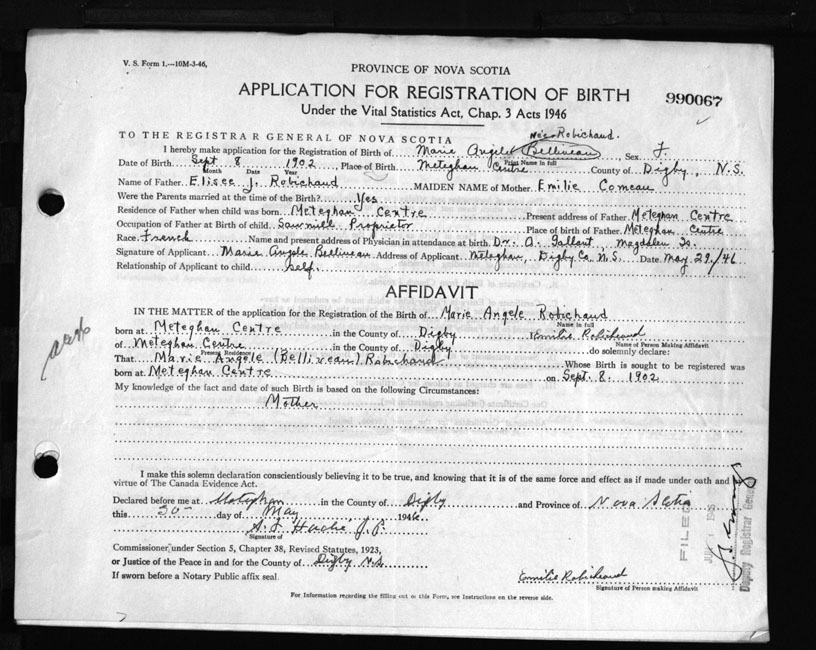 V. S. Form 1.—10M-3-46.
PROVINCE OF NOVA SCOTIA
APPLICATION FOR REGISTRATION OF BIRTH
990067
Under the Vital Statistics Act, Chap. 3 Acts 1946
née Robichaud.
TO THE REGISTRAR GENERAL OF NOVA SCOTIA
I hereby make application for the Registration of Birth of Marie Angele Belliveau Sex F.
Print Name in full
Date of Birth Sept 8 1902 Place of Birth Meteghan Centre County of Digby, N.S.
Month Date Year
Name of Father Elisee J. Robichaud MAIDEN NAME of Mother Emilie Comeau
Were the Parents married at the time of the Birth? Yes
Residence of Father when child was born Meteghan Centre Present address of Father Meteghan Centre
Occupation of Father at Birth of child Sawmill Proprietor Place of birth of Father Meteghan Centre
Race French Name and present address of Physician in attendance at birth Dr. A. Gallant, Magdalen Is.
Signature of Applicant Marie Angele Belliveau Address of Applicant Meteghan, Digby Co. N.S. Date May 29/46
Relationship of Applicant to child Self.
AFFIDAVIT
IN THE MATTER of the application for the Registration of the Birth of Marie Angele Robichaud
Name in full
born at Meteghan Centre in the County of Digby Emilie Robicheaud
Name of Person Making Affidavit
of Meteghan Centre in the County of Digby do solemnly declare:
Present Residence
That Marie Angele (Belliveau) Robichaud Whose Birth is sought to be registered was
born at Meteghan Centre on Sept. 8. 1902
My knowledge of the fact and date of such Birth is based on the following Circumstances:
Mother
I make this solemn declaration conscientiously believing it to be true, and knowing that it is of the same force and effect as if made under oath and by
virtue of The Canada Evidence Act.
Declared before me at Meteghan in the County of Digby and Province of Nova Scotia
this 30 day of May 1946
Signature of
Commissioner under Section 5, Chapter 38, Revised Statutes, 1923,
or Justice of the Peace in and for the County of Digby N.S.
If sworn before a Notary Public affix seal.
Emilie Robicheaud
Signature of Person making Affidavit
For Information regarding the filling out of this Form, see Instructions on the reverse side.
FILED
Deputy Registrar General